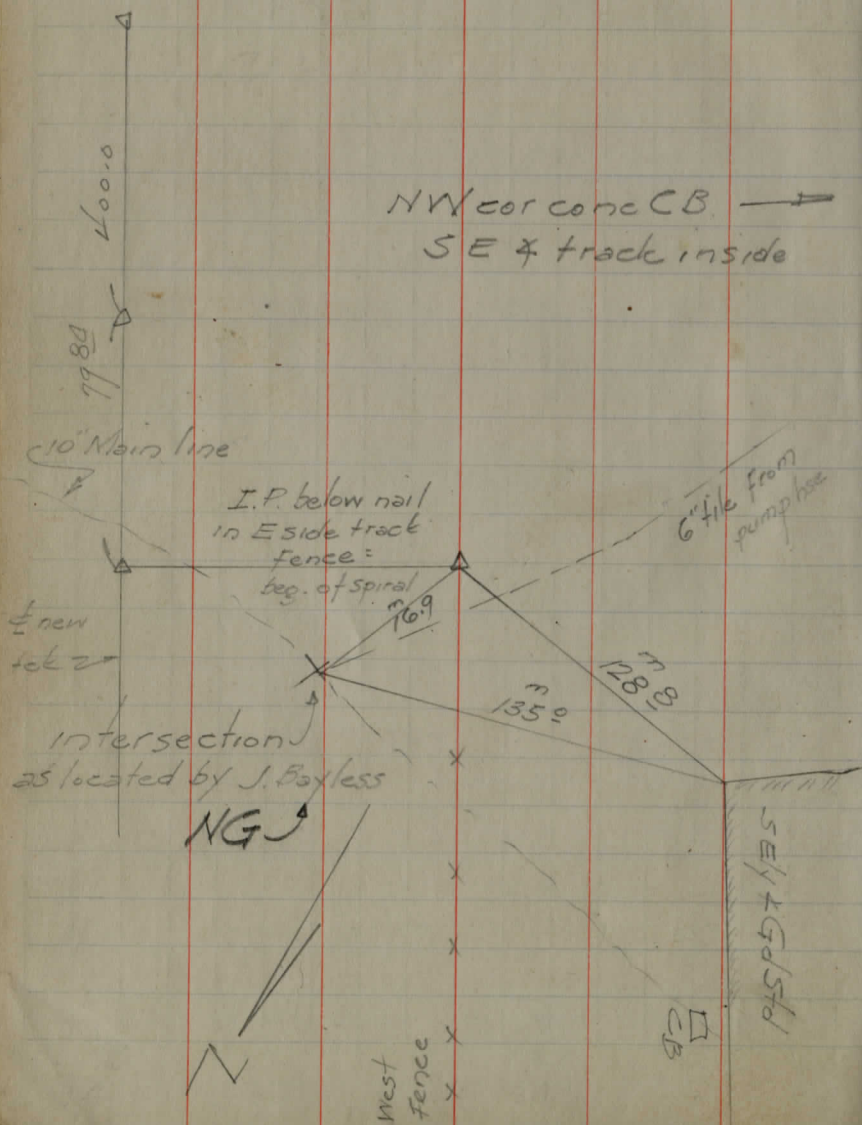 400.0
NW cor conc CB
SE ∡ track inside
79 80
10" Main line
I.P. below nail
in E side track
fence =
beg. of spiral
6" tile from
pump hse
m
76.9
℄ new
m
128.8
m
135.0
intersection
as located by J. Bayless
NG
CB
N
West
Fence